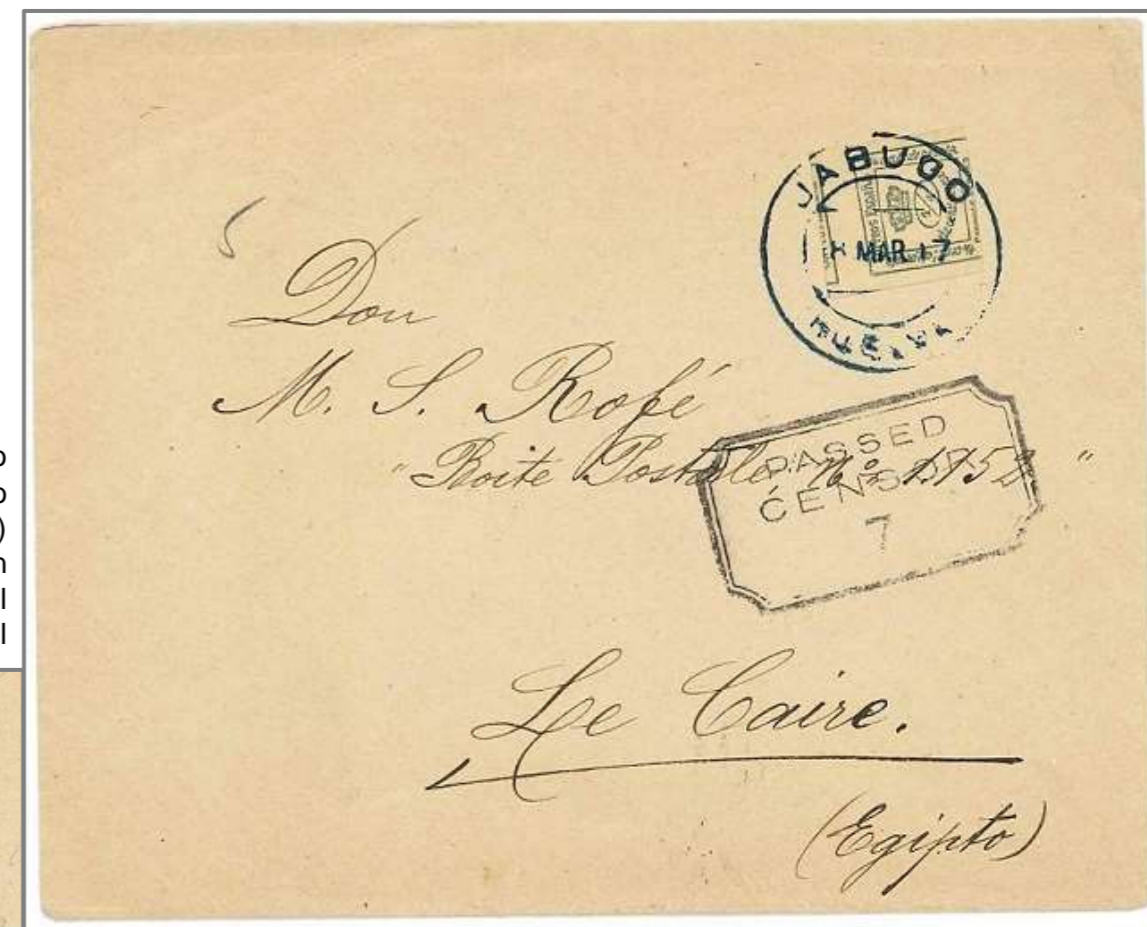 JABUGO
8 MAR 17
HUELVA
Don
M. S. Rofé
"Boite Postale Nº 1752"
PASSED
CENSOR
7
Le Caire.
(Egipto)